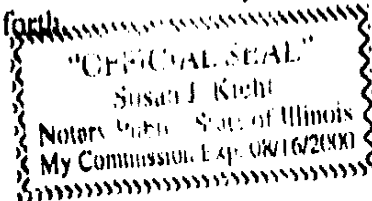 forth.
"OFFICIAL SEAL"
Susan J. Kight
Notary Public State of Illinois
My Commission Exp. 08/16/2000